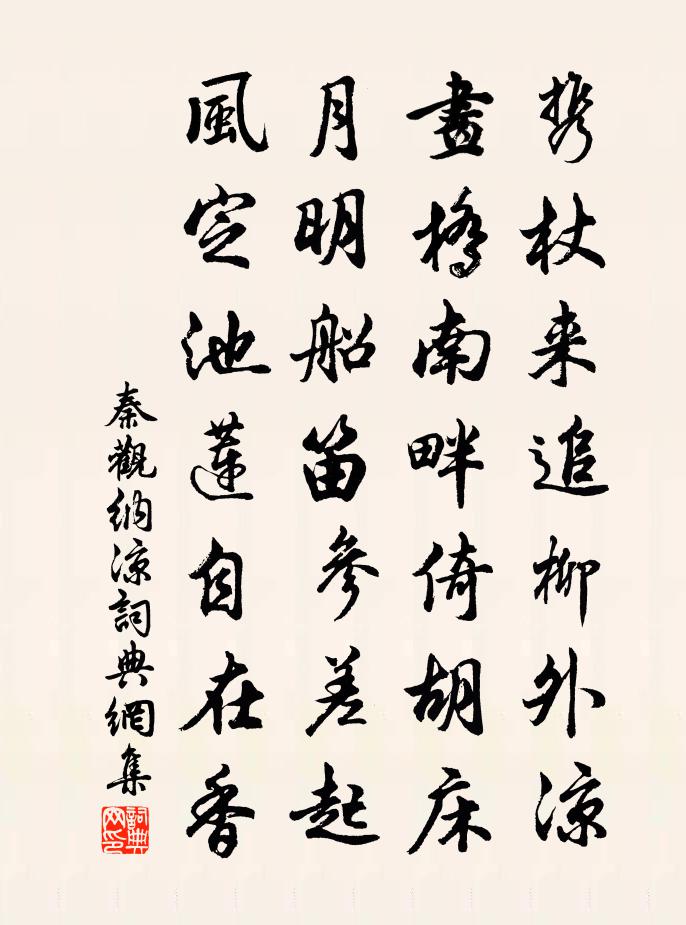 携杖来追柳外涼
畫橋南畔倚胡床
月明船笛參差起
風定池蓮自在香
秦觀納涼詞典網集
詞典網印